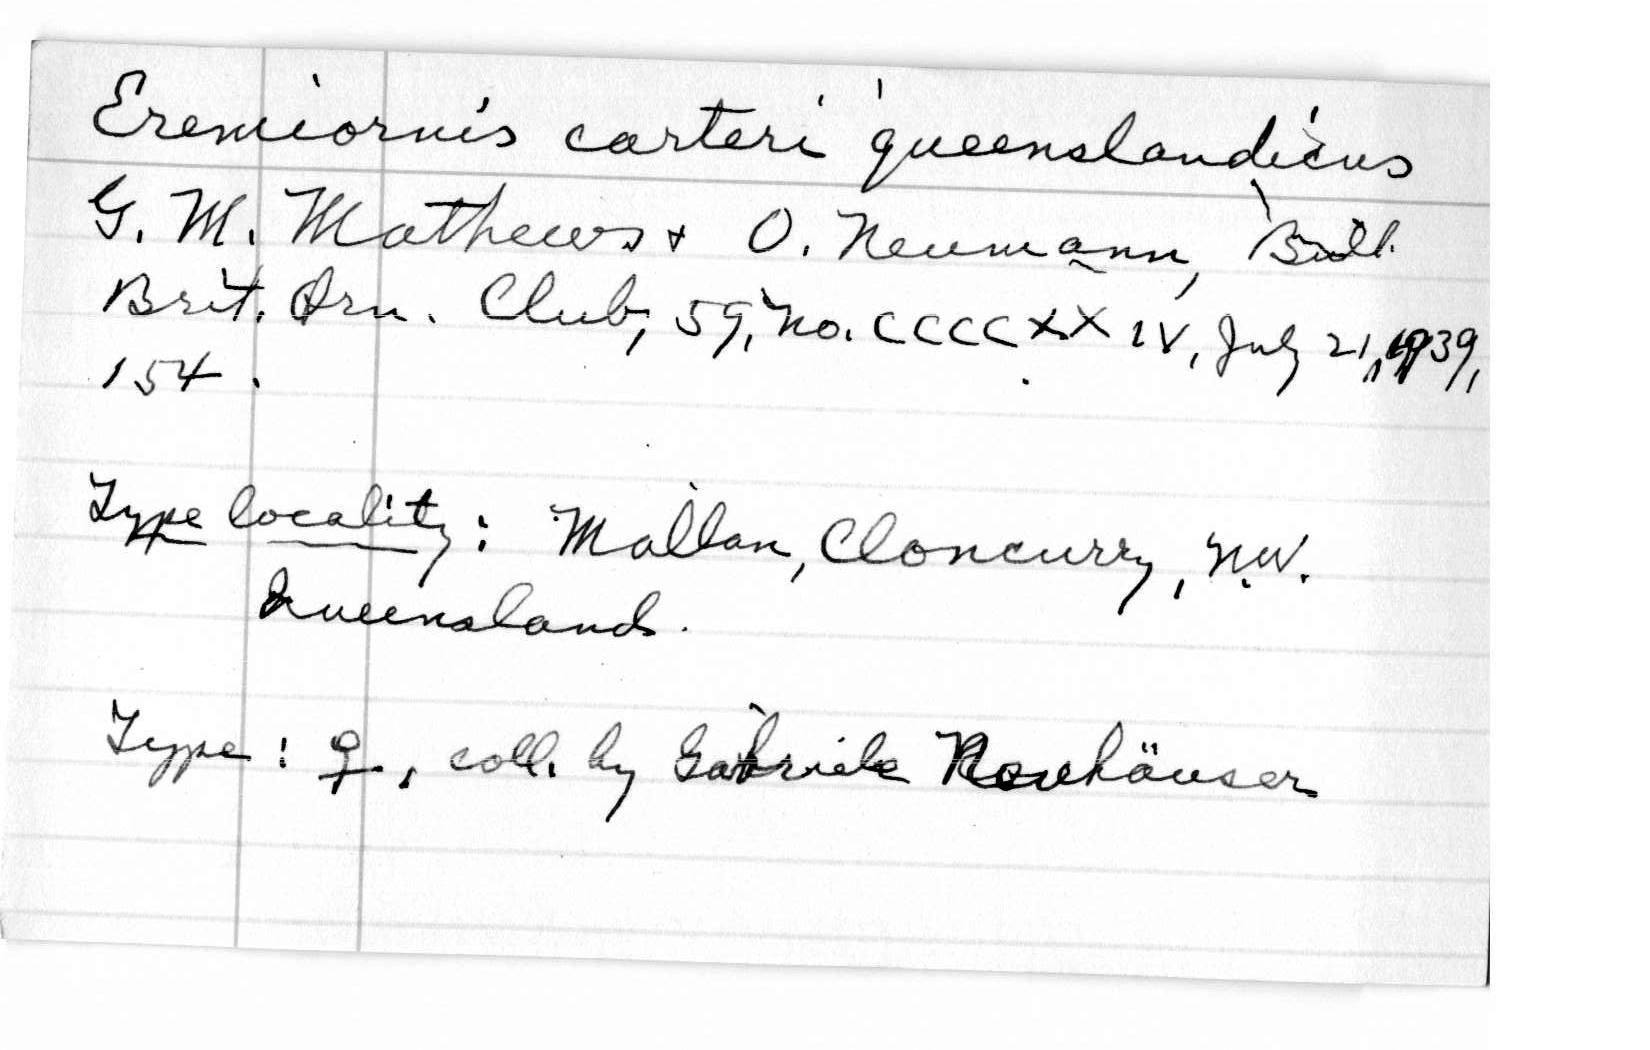 Eremiornis carteri queenslandicus
G. M. Mathews & O. Neumann, Bull.
Brit. Orn. Club, 59, No. CCCCXXIV, July 21, 1939,
154.
Type locality: Mallan, Cloncurry, N.W.
Queensland.
Type: ♀, coll. by Gabriele Neuhäuser